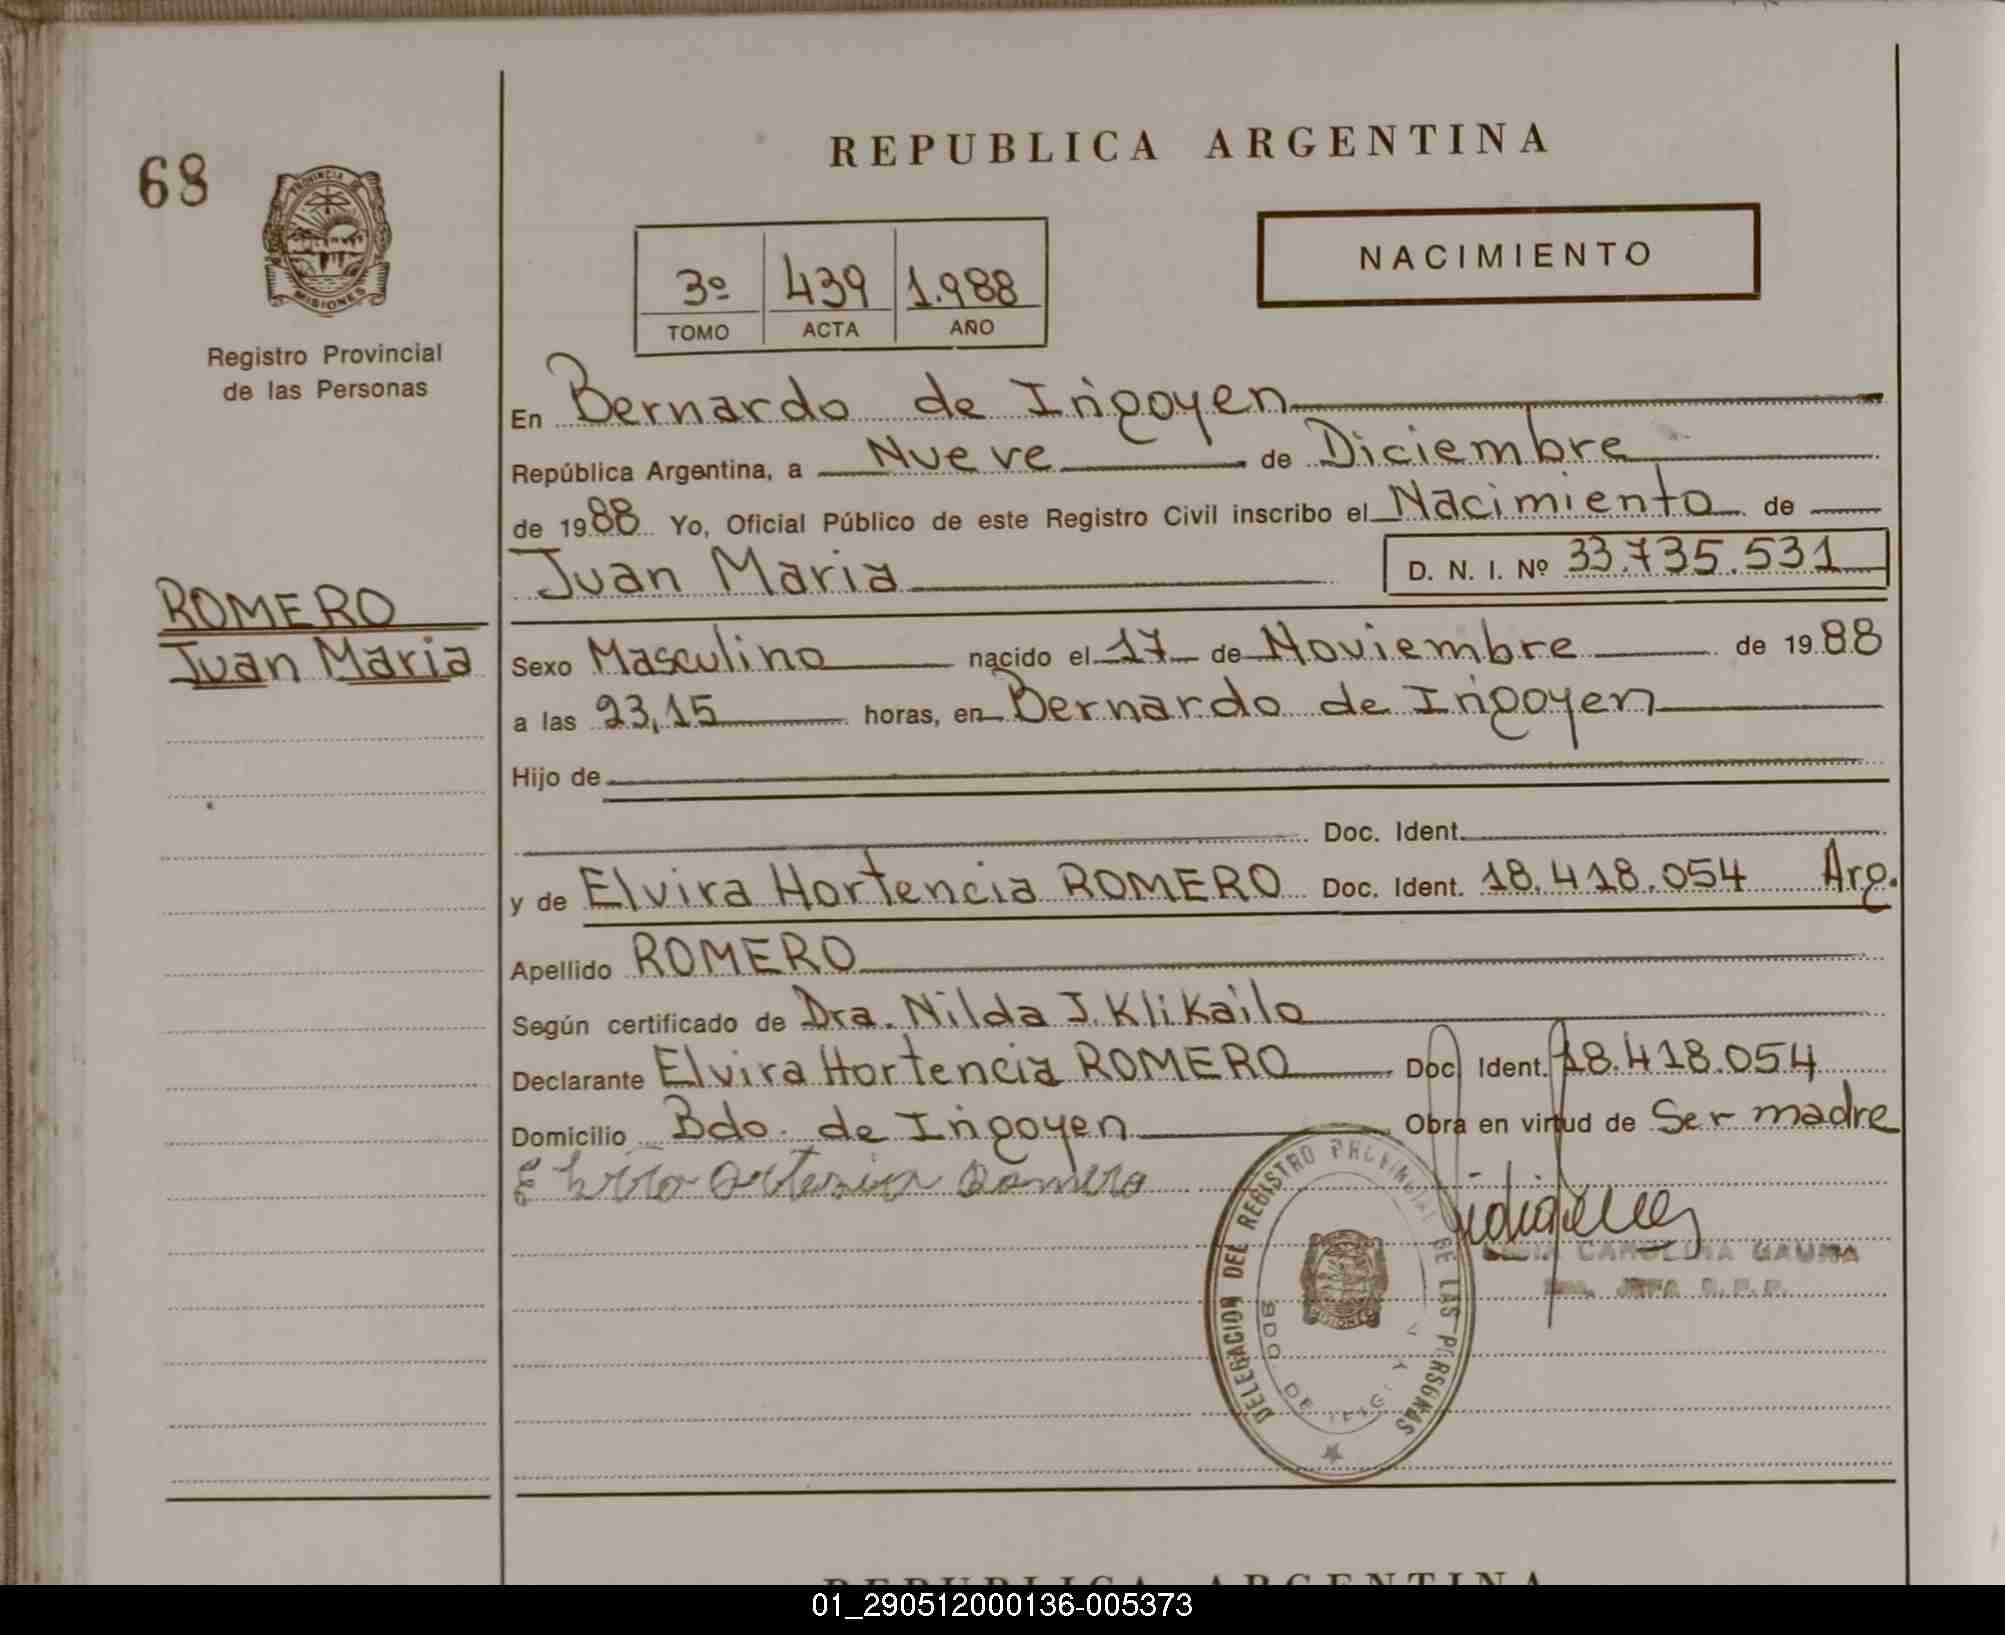 REPUBLICA ARGENTINA
68
PROVINCIA DE
MISIONES
Registro Provincial
de las Personas
NACIMIENTO
3º 439 1.988
TOMO ACTA AÑO
En Bernardo de Irigoyen
República Argentina, a Nueve de Diciembre
de 1988 Yo, Oficial Público de este Registro Civil inscribo el Nacimiento de
Juan Maria D. N. I. Nº 33.735.531
ROMERO
Juan Maria
Sexo Masculino nacido el 17 de Noviembre de 1988
a las 23,15 horas, en Bernardo de Irigoyen
Hijo de
Doc. Ident.
y de Elvira Hortencia ROMERO Doc. Ident. 18.418.054 Arg.
Apellido ROMERO
Según certificado de Dra. Nilda J. Klikailo
Declarante Elvira Hortencia ROMERO Doc. Ident. 18.418.054
Domicilio Bdo. de Irigoyen Obra en virtud de Ser madre
Romero
DELEGACION DEL REGISTRO PROVINCIAL DE LAS PERSONAS
BDO. DE
MISIONES
CAROLINA GAUNA
JEFA R.P.P.
REPUBLICA ARGENTINA
01_290512000136-005373